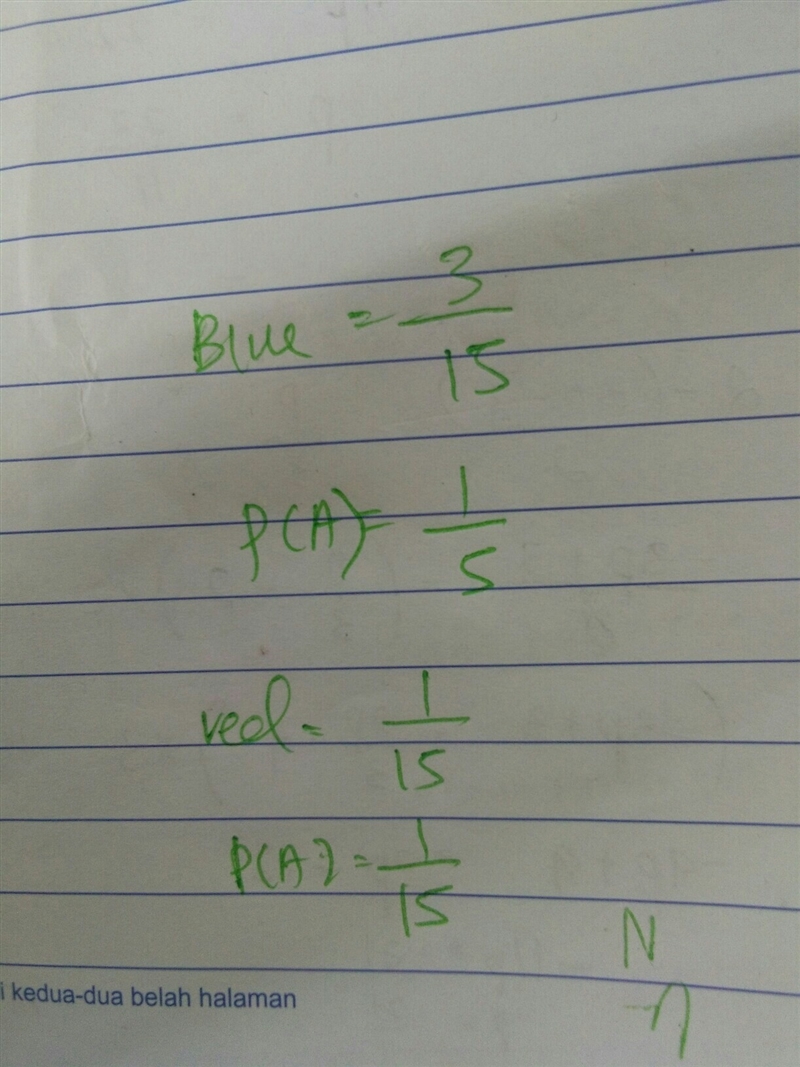 Blue = 3/15
P(A) = 1/5
red = 1/15
P(A) = 1/15
N
i kedua-dua belah halaman